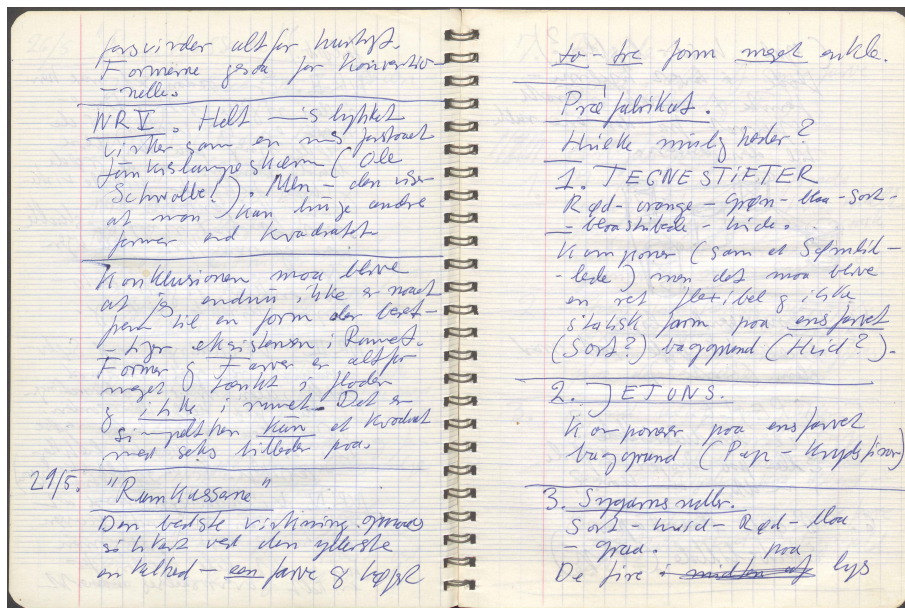 forsvinder alt for hurtigt.
Formerne gosda for Konventio-
-nelle.
NR V. Helt mislykket
virker som en misforstaaet
funkislampeskærm (Ole
Schwalbe!). Men - den viser
at man kan bruge andre
former end kvadratet
Konklusionen maa blive
at jeg endnu ikke er naaet
frem til en form der beret-
-tiger eksistensen i Rummet.
Former & Farver er alt for
meget tænkt i flader
& ikke i rummet. Det er
simpelthen kun et kvadrat
med seks billeder paa.
29/5. "Rumkasserne"
Den bedste virkning opnaaes
sikkert ved den yderste
enkelhed - een farve &
to - tre form meget enkle.
Præfabrikat.
Hvilke muligheder?
1. TEGNESTIFTER
Rød - orange - Grøn - blaa - Sort -
- hvide.
Komponer (som et Sømbil-
-lede) men det maa blive
en ret flexibel & ikke
statisk form paa ensfarvet
(Sort?) baggrund (Hvid?).
2. JETONS.
Komponer paa ensfarvet
baggrund (Pap - Krydsfiner)
3. Sygarnsruller.
Sort - hvid - Rød - blaa
- graa.
De fire paa lys